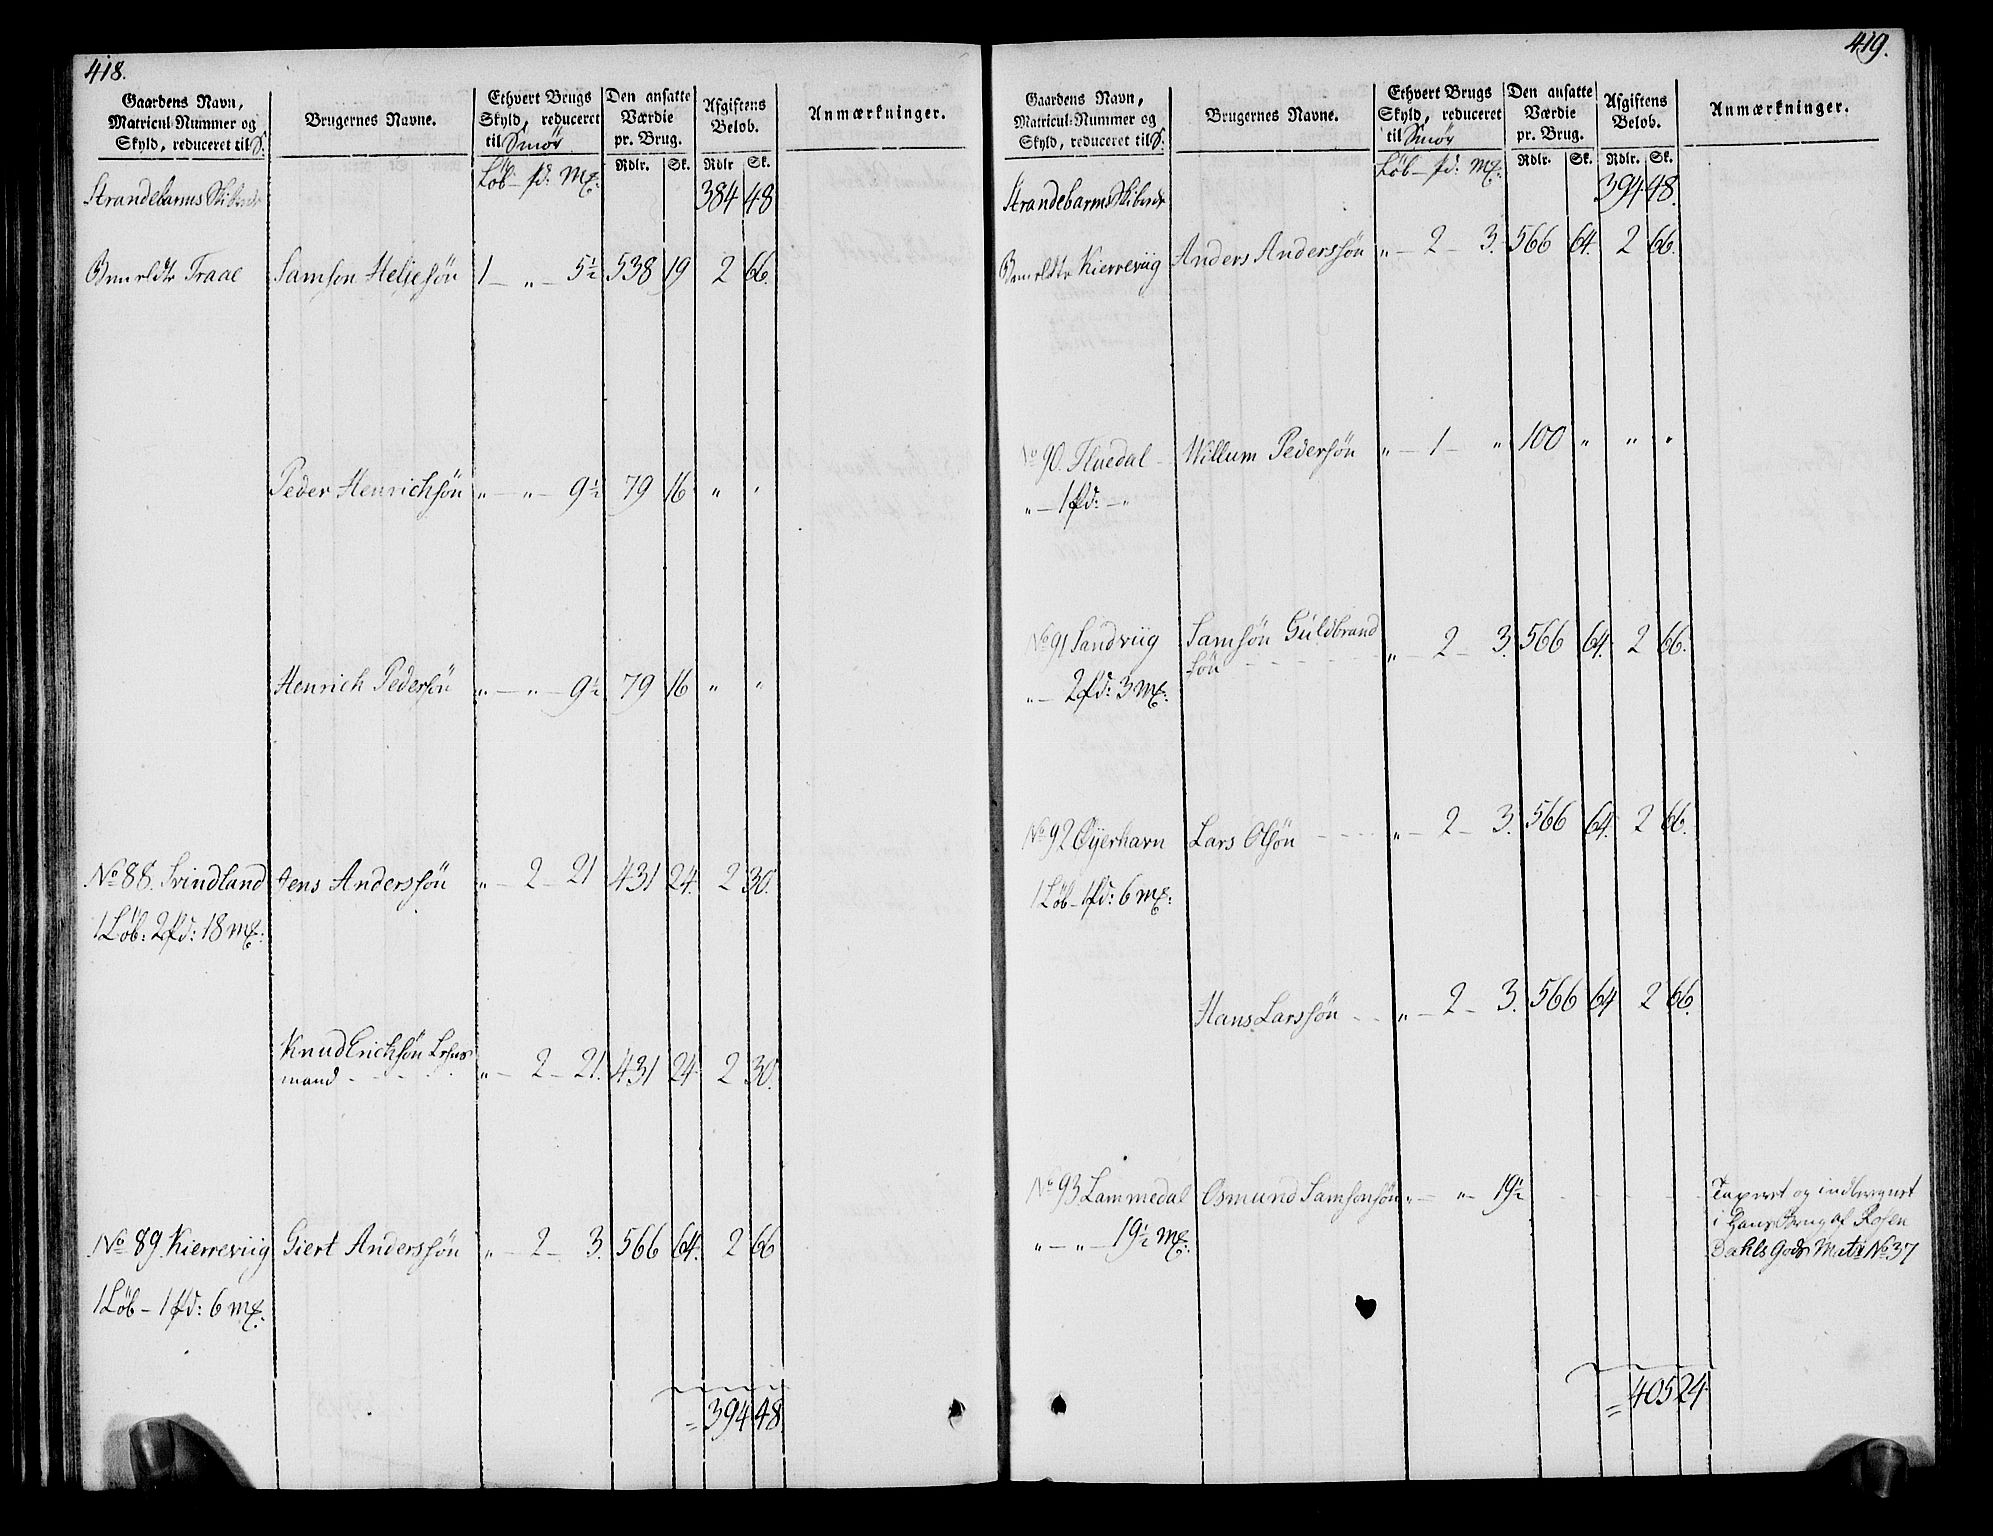 418.
Gaardens Navn,
Matricul-Nummer og
Skyld, reduceret til S:
Brugernes Navne.
Ethvert Brugs
Skyld, reduceret
til Smör
Den ansatte
Værdie
pr. Brug.
Afgiftens
Beløb.
Anmærkninger.
Rdlr. Sk. Rdlr Sk.
Løb - pd: Mk:
Strandebarms Skibrede 384 48
Traae Samson Heljesön 1 - „ - 5½ 538 19 2 66.
Peder Henrichsön „ - „ - 9½ 79 16 „ „
Henrich Pedersön „ - „ - 9½ 79 16 „ „
No 88. Svindland Jens Anderssön „ - 2 - 21 431 24. 2 30.
1 Løb: 2 pd: 18 Mk:
Knud Erichsön Lehns
mand - - - - „ - 2 - 21. 431 24. 2 30.
No 89. Kierreviig Giert Anderssön „ - 2 - 3. 566 64. 2 66
1 Løb - 1 pd: 6 Mk:
= 394 48
419.
Gaardens Navn,
Matricul-Nummer og
Skyld, reduceret til S:
Brugernes Navne.
Ethvert Brugs
Skyld, reduceret
til Smör
Den ansatte
Værdie
pr. Brug.
Afgiftens
Beløb.
Anmærkninger.
Rdlr. Sk. Rdlr. Sk.
Løb - pd: Mk:
Strandebarms Skibrede 394 48.
Kierreviig Anders Anderssön „ - 2 - 3. 566 64. 2 66.
No 90. Fluedal - Willum Pedersön „ - 1 - „ 100 „ „ „
„ - 1 pd: - „
No 91 Sandviig Samsön Guldbrand
sön - - - - „ - 2 - 3. 566 64. 2 66.
„ - 2 pd: 3 Mk:
No 92 Øyerhavn Lars Olsön - - - - „ - 2 - 3. 566 64. 2 66.
1 Løb - 1 pd: 6 Mk:
Hans Larssön - - „ - 2 - 3. 566 64 2 66.
No 93. Lammedal Osmund Samsonsön „ - „ - 19½ - - - -
„ - „ - 19½ Mk:
Taxeret og indberegnet
i Hans Brug af Rosen
Dahls Gods Matr No 37
= 405 24